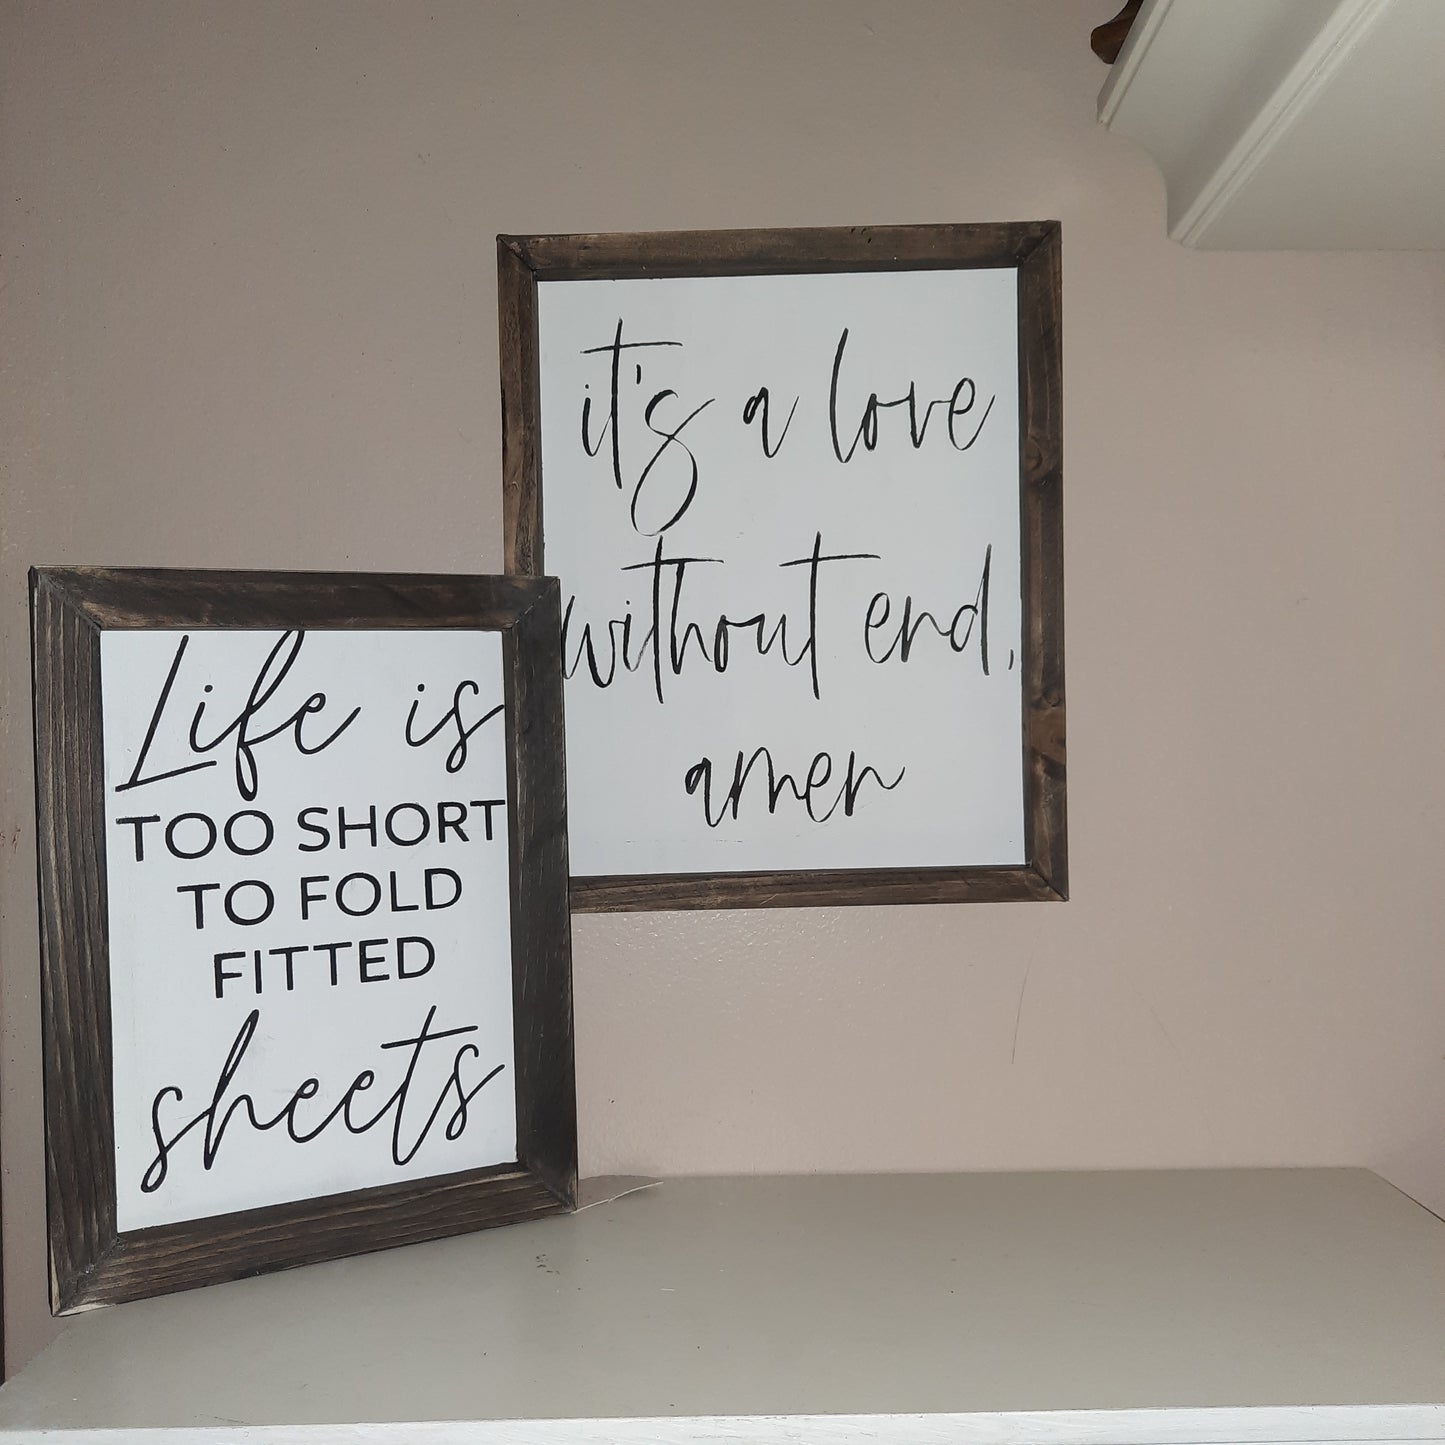 it's a love
without end,
amen
Life is
TOO SHORT
TO FOLD
FITTED
sheets